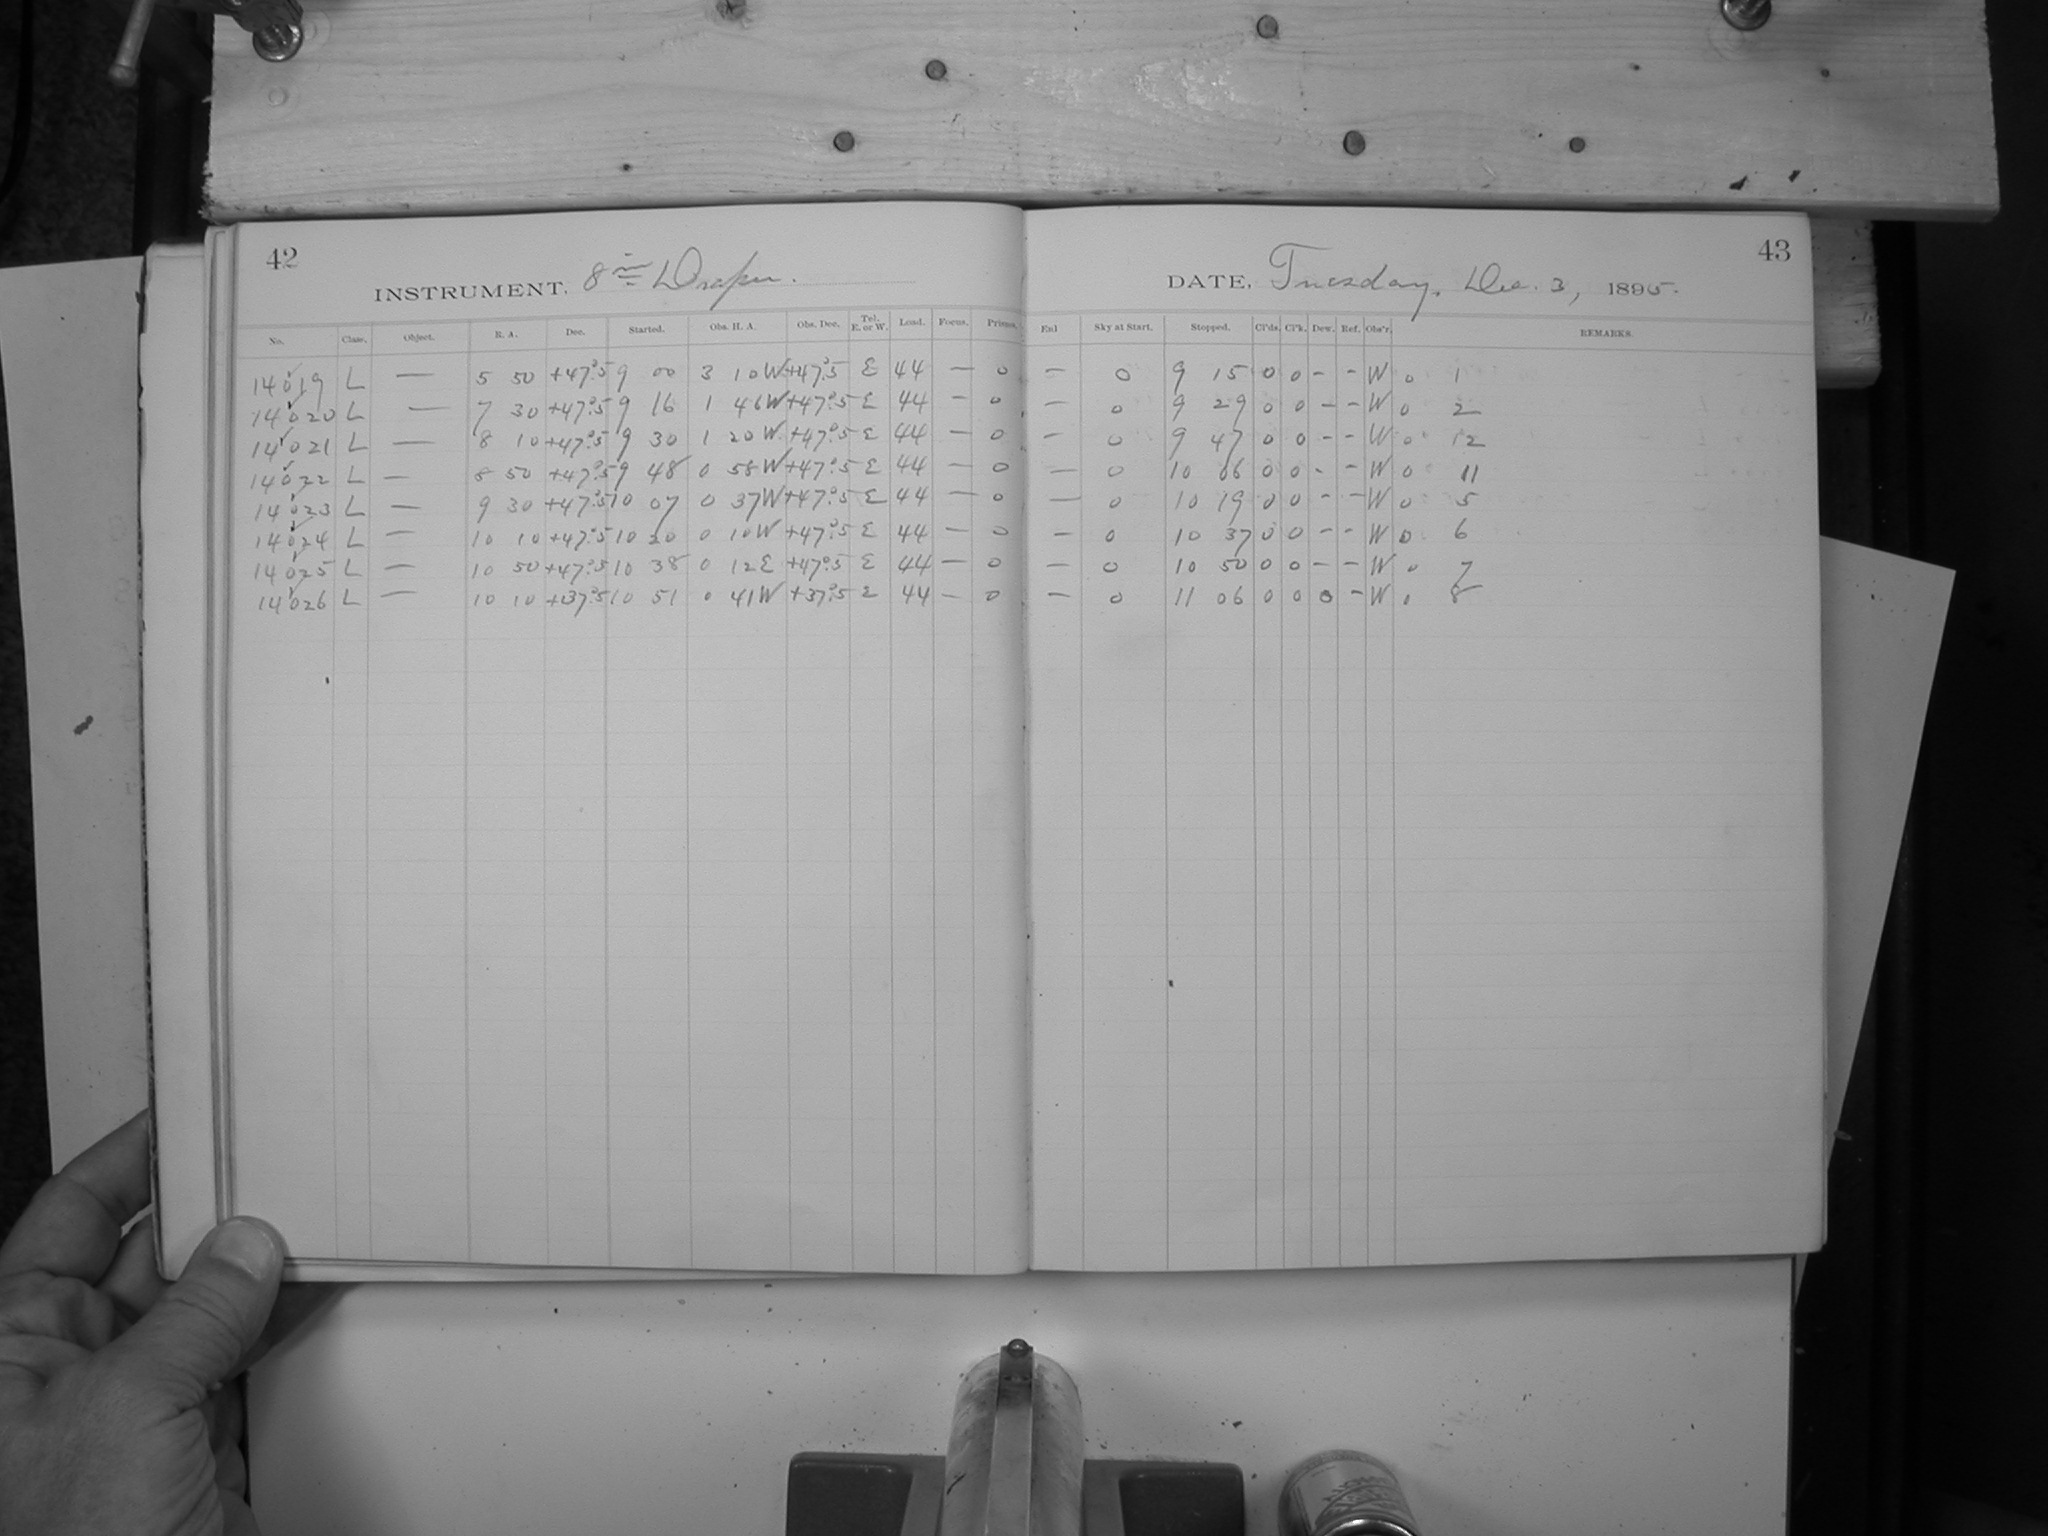 42
INSTRUMENT. 8 in Draper.
No. Class. Object. R. A. Dec. Started. Obs. H. A. Obs. Dec. Tel. E. or W. Load. Focus. Prisms.
14019 L — 5 50 +47°.5 9 00 3 10W +47°.5 E 44 — 0
14020 L — 7 30 +47°.5 9 16 1 46W +47°.5 E 44 — 0
14021 L — 8 10 +47°.5 9 30 1 20W +47°.5 E 44 — 0
14022 L — 8 50 +47°.5 9 48 0 58W +47°.5 E 44 — 0
14023 L — 9 30 +47°.5 10 07 0 37W +47°.5 E 44 — 0
14024 L — 10 10 +47°.5 10 20 0 10W +47°.5 E 44 — 0
14025 L — 10 50 +47°.5 10 38 0 12E +47°.5 E 44 — 0
14026 L — 10 10 +37°.5 10 51 0 41W +37°.5 E 44 — 0
43
DATE, Tuesday, Dec. 3, 1895.
Sky at Start. Stopped. Cl'ds. Cl'k. Dew. Ref. Obs'r. REMARKS.
— 0 9 15 0 0 - - W 0 1
— 0 9 29 0 0 - - W 0 2
— 0 9 47 0 0 - - W 0 12
— 0 10 06 0 0 - - W 0 11
— 0 10 19 0 0 - - W 0 5
— 0 10 37 0 0 - - W 0 6
— 0 10 50 0 0 - - W 0 7
— 0 11 06 0 0 0 - W 0 8